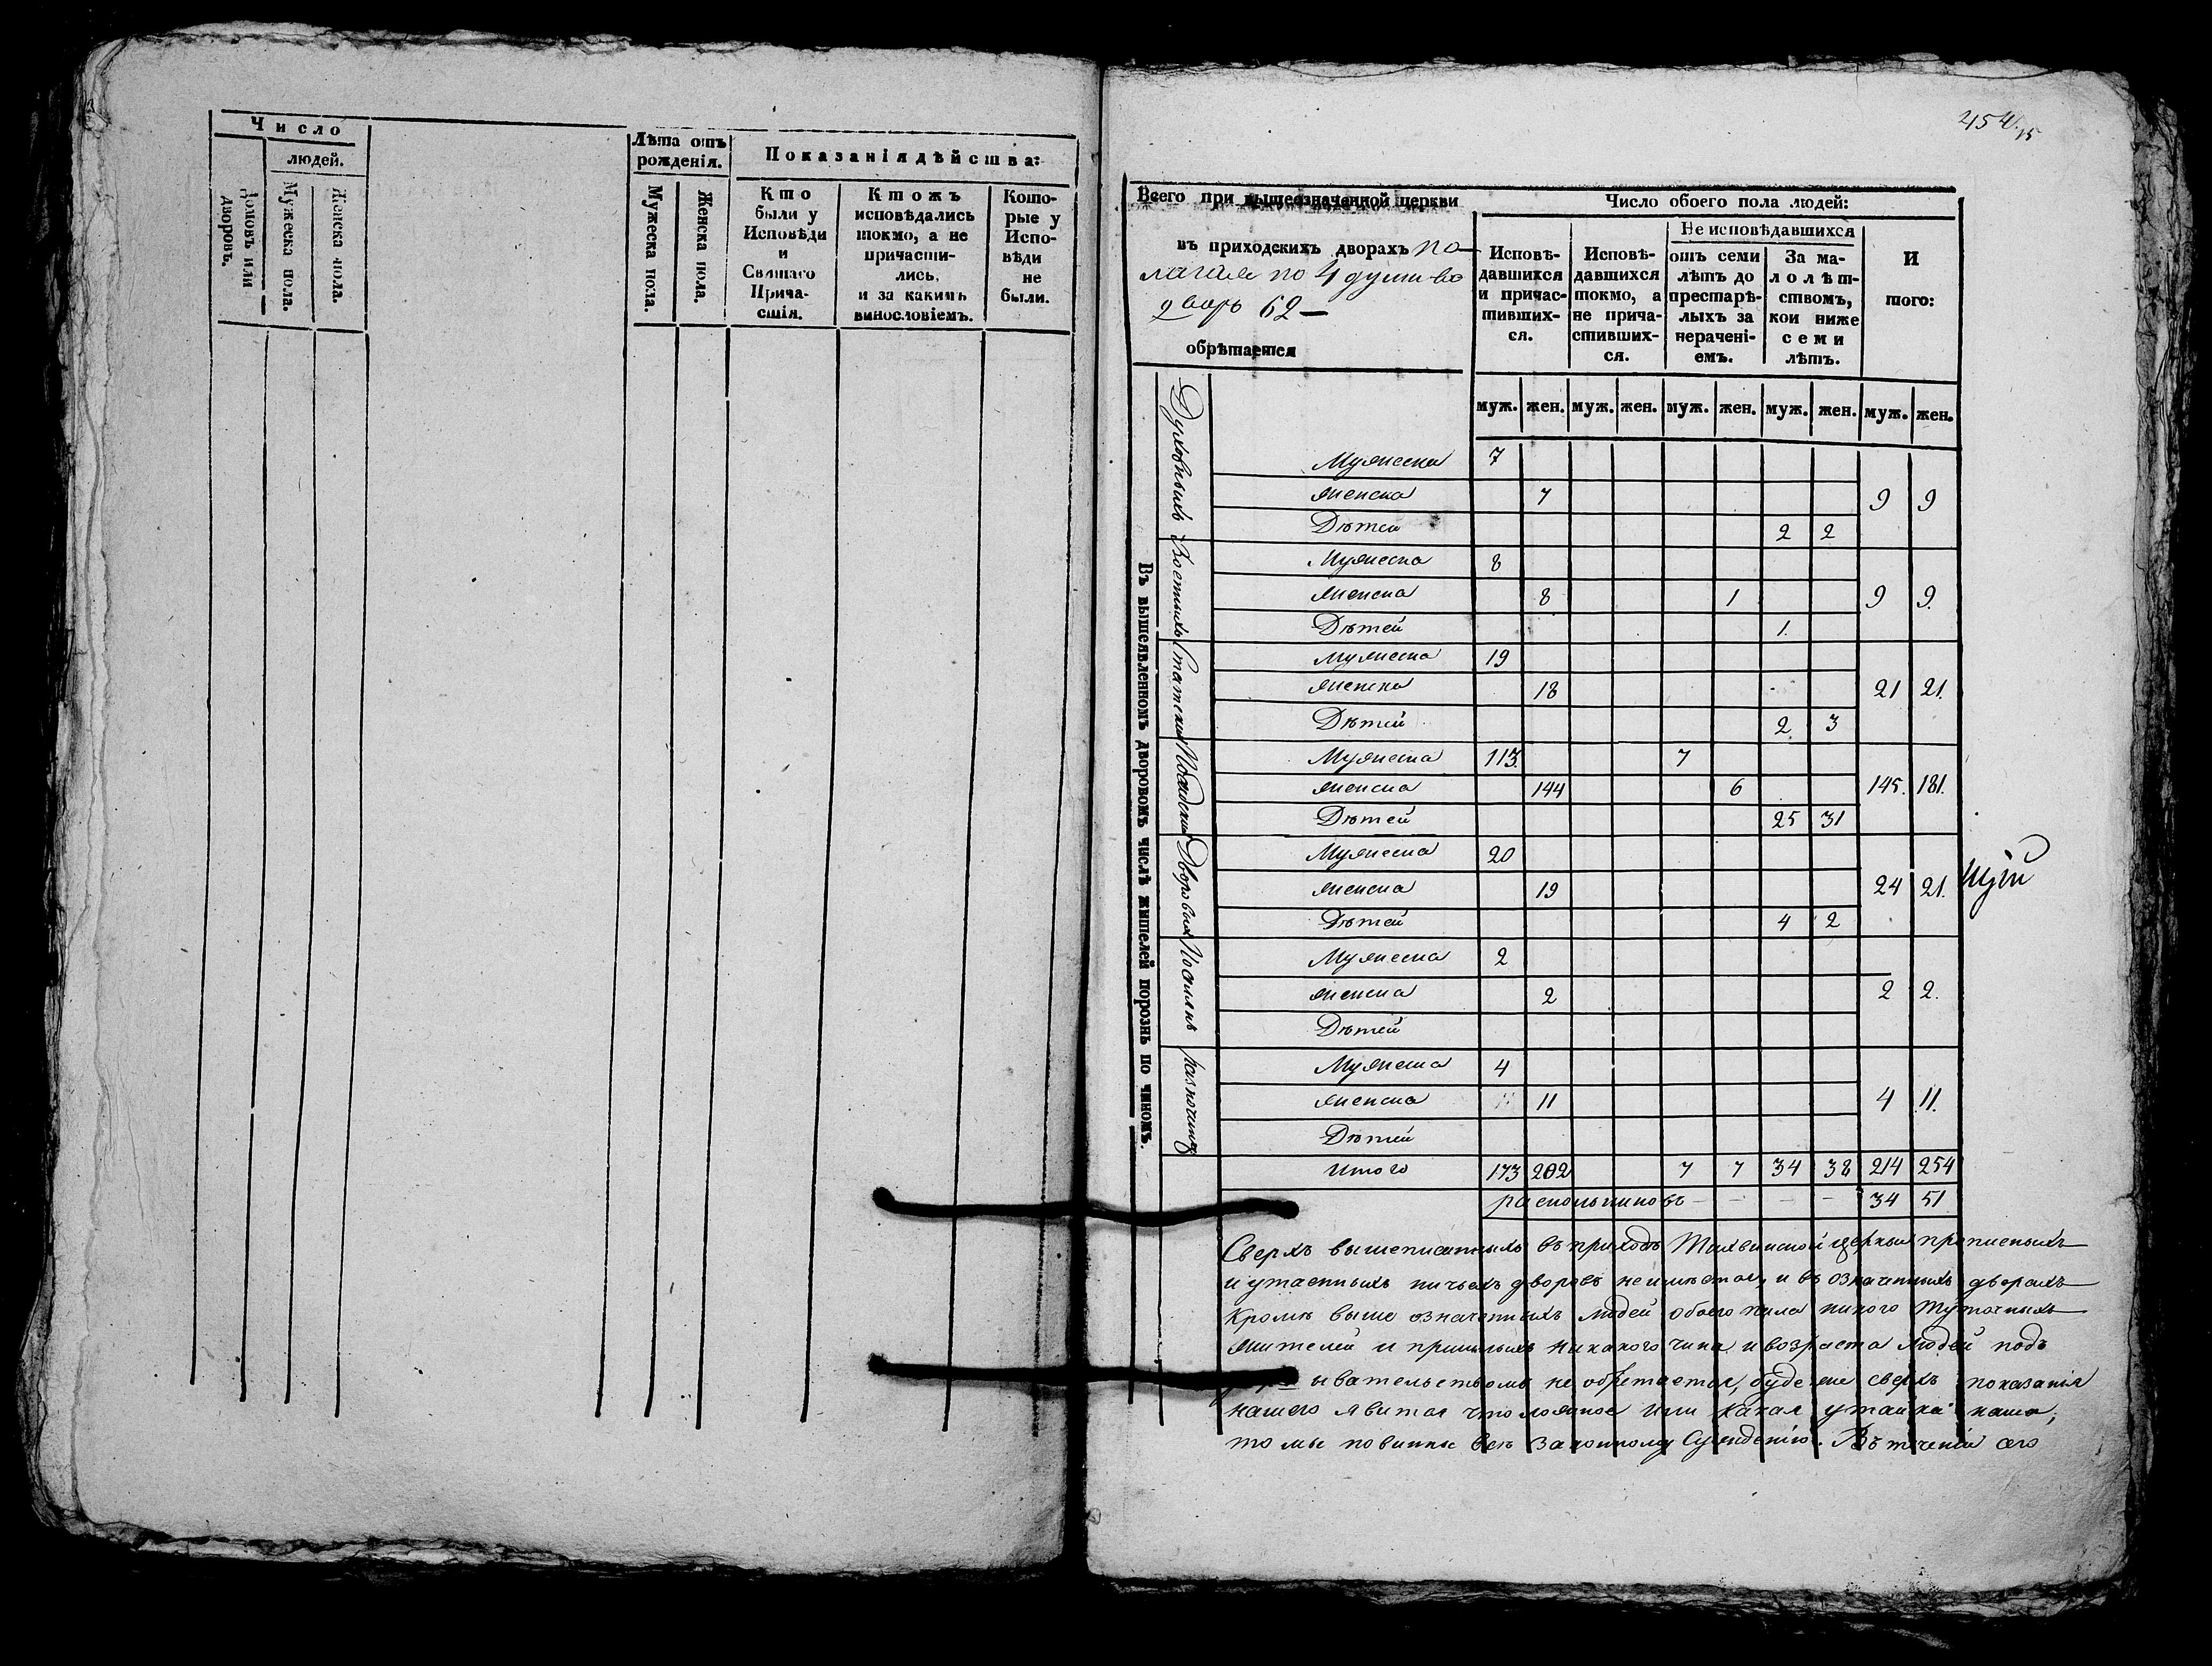 Число
людей.
Домовъ или дворовъ.
Мужеска пола.
Женска пола.
Лѣта отъ рожденія.
Мужеска пола.
Женска пола.
Показанія дѣйства:
Кто были у Исповѣди и Святаго Причастія.
Ктожъ исповѣдались токмо, а не причастились. и за какимъ винословіемъ.
Которые у Исповѣди не были.
454
Всего при вышеозначенной церкви
въ приходскихъ дворахъ по-
лагая по 4 души во
дворъ 62 —
обрѣтается
Число обоего пола людей:
Исповѣдавшихся и причастившихся.
Исповѣдавшихся токмо, а не причастившихся.
Не исповѣдавшихся
отъ семи лѣтъ до престарѣлыхъ за нераченіемъ.
За малолѣтствомъ, кои ниже семи лѣтъ.
И того:
муж. жен. муж. жен. муж. жен. муж. жен. муж. жен.
Въ вышеявленномъ дворовомъ числѣ жителей порознь по чиномъ.
Духовныхъ
Мужеска 7
Женска 7 9 9
Дѣтей 2 2
Военныхъ
Мужеска 8
Женска 8 1 9 9.
Дѣтей 1.
Статских
Мужеска 19
Женска 18 21 21.
Дѣтей 2 3
Посадских
Мужеска 113. 7
Женска 144 6 145. 181.
Дѣтей 25 31
Дворовых
Мужеска 20
Женска 19 24 21.
Дѣтей 4 2
Поселян
Мужеска 2
Женска 2 2 2.
Дѣтей
Разночинц
Мужеска 4
Женска 11 4 11.
Дѣтей
Итого 173 202 7 7 34 38 214 254
раскольниковъ — — — — 34 51
Сверхъ вышеписанныхъ въ приходѣ Тихвинской церкви прописныхъ
и утаенныхъ ничьихъ дворовъ не имѣется, и въ означенныхъ дворахъ
кромѣ выше означенныхъ людей обоего пола никого тутошныхъ
жителей и пришлыхъ никакого чина и возраста людей подъ
ывательствомъ не обрѣтается, буде же сверхъ показанія
нашего явится что ложное или какая утайка наша,
то мы повинны всѣ законному сужденію. Въ теченіи сего